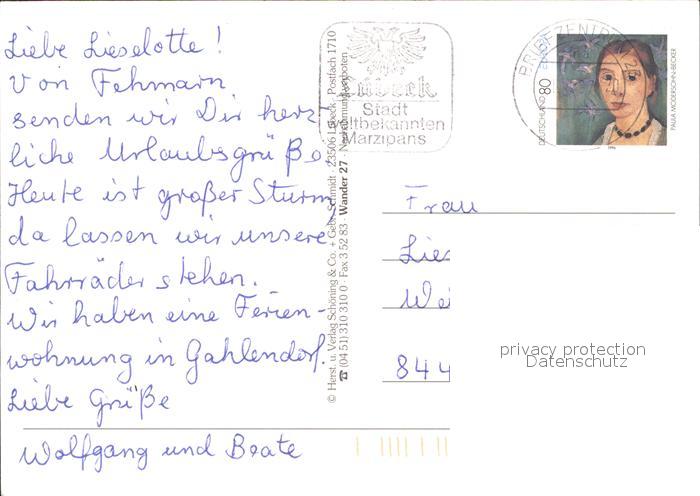 Liebe Lieselotte!
Von Fehmarn
senden wir Dir herz-
liche Urlaubsgrüße
Heute ist großer Sturm,
da lassen wir unsere
Fahrräder stehen.
Wir haben eine Ferien-
wohnung in Gahlendorf.
Liebe Grüße
Wolfgang und Beate
© Herst. u. Verlag Schöning & Co. + Gebr. Schmidt · 23506 Lübeck · Postfach 1710
☎ (04 51) 310 310 0 · Fax 3 52 83 · Wander 27 ·
Lübeck
Stadt
weltbekannten
Marzipans
BRIEFZENTRUM
DEUTSCHLAND 80
PAULA MODERSOHN-BECKER
1996
Frau
Lies
Wei
844
privacy protection
Datenschutz